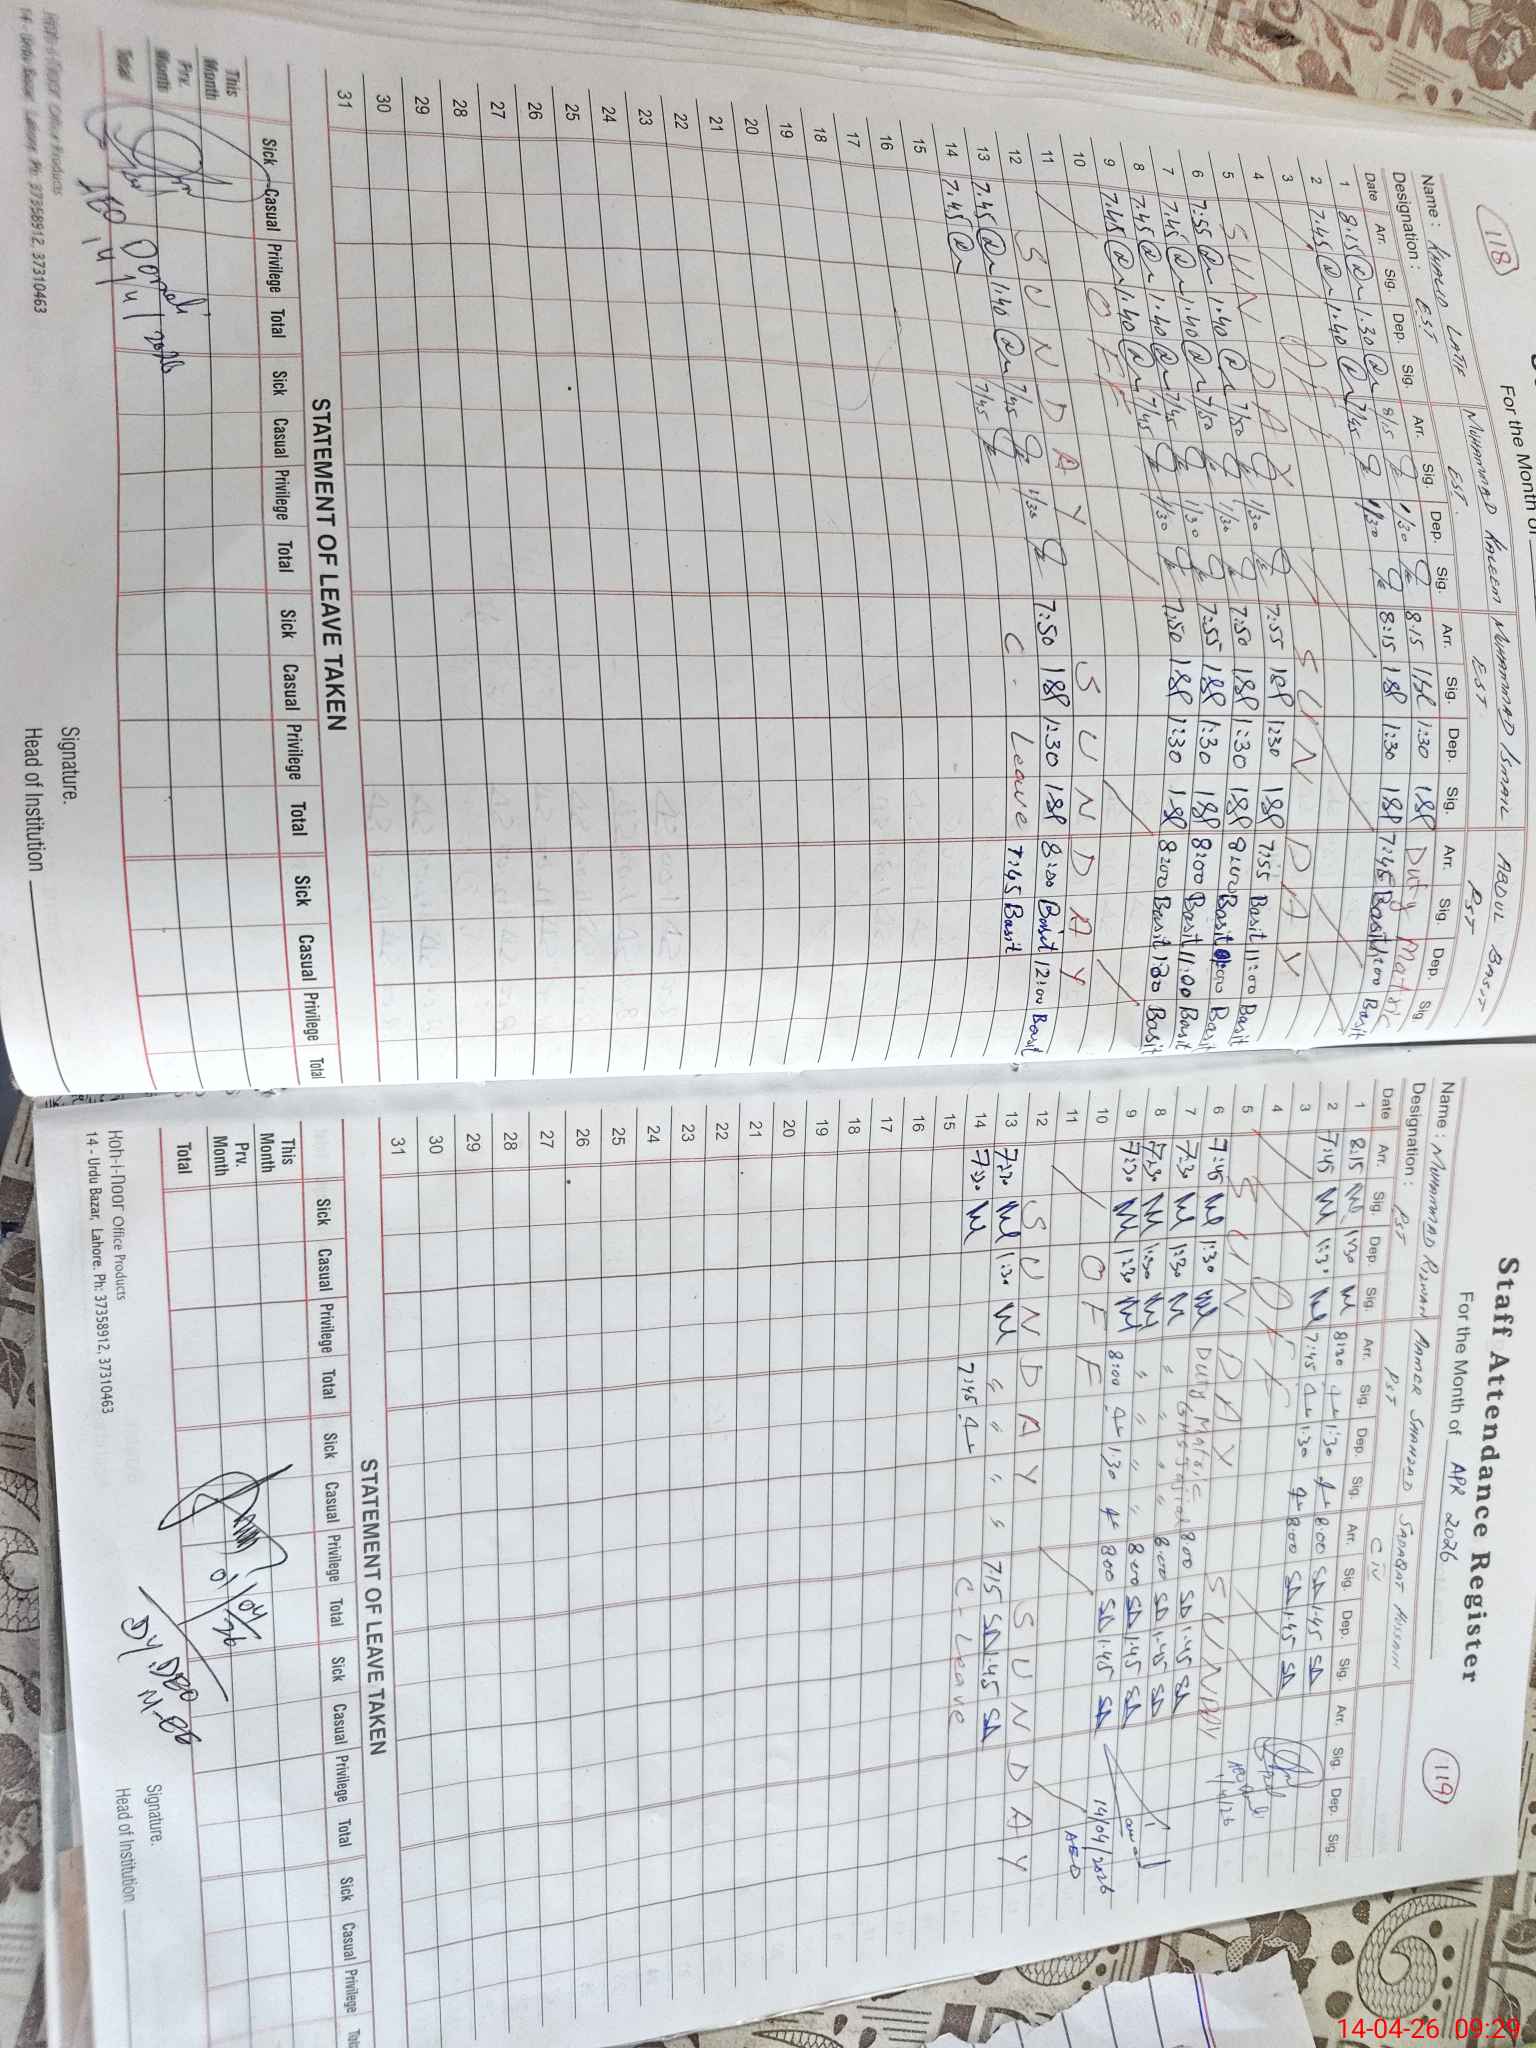 118
For the Month of
Name : KHALID LATIF MUHAMMAD KALEEM MUHAMMAD ISMAIL ABDUL BASIT
Designation : EST EST EST PST
Date Arr. Sig. Dep. Sig. Arr. Sig. Dep. Sig. Arr. Sig. Dep. Sig. Arr. Sig. Dep. Sig.
1 8.15 1.30 8/15 1/30 8:15 1:30 Duty Matric
2 7.45 1.40 7/45 1/30 8:15 1:30 7:45 Basit 1:00 Basit
3 OFF
4
5 SUNDAY SUNDAY
6 7:55 1.40 7/50 1/30 7:55 1:30 7:55 Basit 11:00 Basit
7 7.45 1.40 7/50 1/30 7:50 1:30 8:00 Basit Basit
8 7.45 1.40 7/45 1/30 7:55 1:30 8:00 Basit 11:00 Basit
9 7.45 1.40 7/45 1/30 7:50 1:30 8:00 Basit 1:30 Basit
10 OFF
11
12 SUNDAY SUNDAY
13 7.45 1.40 7/45 1/30 7:50 1:30 8:00 Basit 12:00 Basit
14 7.45 7/45 C. Leave 7:45 Basit
15
16
17
18
19
20
21
22
23
24
25
26
27
28
29
30
31
STATEMENT OF LEAVE TAKEN
Sick Casual Privilege Total Sick Casual Privilege Total Sick Casual Privilege Total Sick Casual Privilege Total
This Month
Prv. Month
Total
1/4/2026
Signature.
Head of Institution
Hoh-i-Noor Office Products
14 - Urdu Bazar, Lahore. Ph: 37358912, 37310463
Staff Attendance Register
119
For the Month of APR 2026
Name : MUHAMMAD RIZWAN AAMER SHAHZAD SADAQAT HUSSAIN
Designation : PST PST C IV
Date Arr. Sig. Dep. Sig. Arr. Sig. Dep. Sig. Arr. Sig. Dep. Sig. Arr. Sig. Dep. Sig.
1 8:15 1:30 8:30 1:30 8:00 SD 1.45 SD
2 7:45 1:30 7:45 1:30 8:00 SD 1.45 SD
3 OFF
4
5 SUNDAY SUNDAY
1/4/26
6 7:45 1:30 Duty Matric 8:00 SD 1.45 SD
7 7:30 1:30 8:00 SD 1.45 SD
8 7:30 1:30 " " " " 8:00 SD 1.45 SD
9 7:30 1:30 8:00 1:30 8:00 SD 1.45 SD
10 OFF
14/04/2026
AEO
11
12 SUNDAY SUNDAY
13 7:30 1:30 " " " " 7:15 SD 1.45 SD
14 7:30 7:45 C-Leave
15
16
17
18
19
20
21
22
23
24
25
26
27
28
29
30
31
STATEMENT OF LEAVE TAKEN
Sick Casual Privilege Total Sick Casual Privilege Total Sick Casual Privilege Total Sick Casual Privilege
This Month
Prv. Month
Total
01/04/26
DY.DEO
M-EE
Signature.
Head of Institution
Hoh-i-Noor Office Products
14 - Urdu Bazar, Lahore. Ph: 37358912, 37310463
14-04-26 09:29